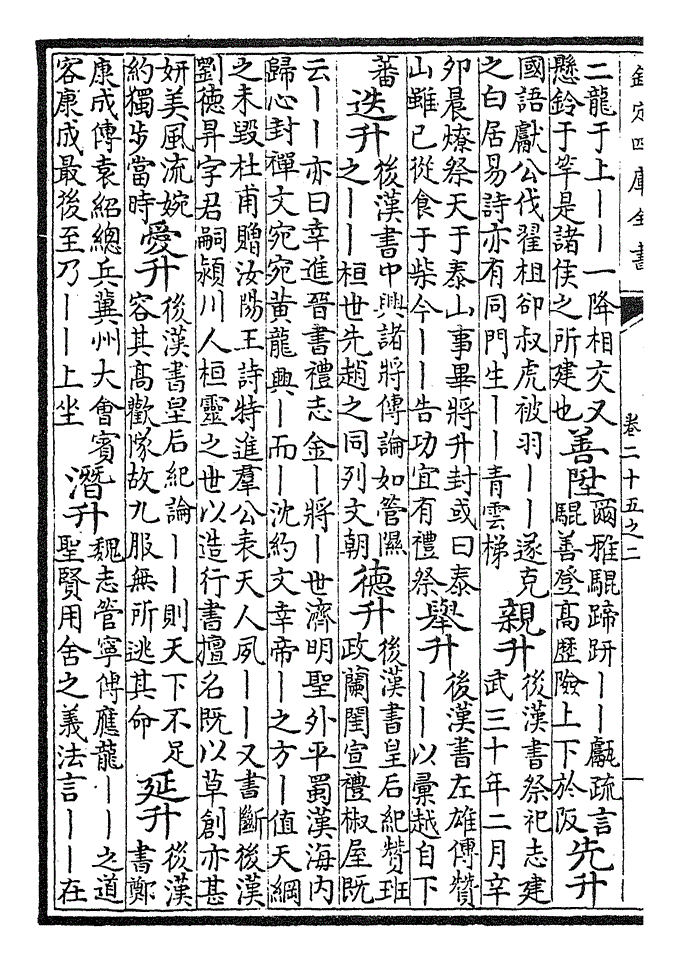 欽定四庫全書
卷二十五之二
二龍于上丨丨一降相交又
懸鈴于竿是諸侯之所建也
善陞
爾雅騉蹄趼丨丨甗疏言
騉善登高歷險上下於阪
先升
國語獻公伐翟柤卻叔虎被羽丨丨遂克
之白居易詩亦有同門生丨丨青雲梯
親升
後漢書祭祀志建
武三十年二月辛
卯晨燎祭天于泰山事畢將升封或曰泰
山雖已從食于柴今丨丨告功宜有禮祭
舉升
後漢書左雄傳贊
丨丨以彙越自下
蕃
迭升
後漢書中興諸將傳論如管隰
之丨丨桓世先趙之同列文朝
德升
後漢書皇后紀贊班
政蘭閨宣禮椒屋既
云丨丨亦曰幸進晉書禮志金丨將丨世濟明聖外平蜀漢海内
歸心封禪文宛宛黃龍興丨而丨沈約文幸帝丨之方丨值天綱
之未毀杜甫贈汝陽王詩特進羣公表天人夙丨丨又書斷後漢
劉德昇字君嗣潁川人桓靈之世以造行書擅名既以草創亦甚
妍美風流婉
約獨步當時
愛升
後漢書皇后紀論丨丨則天下不足
容其高歡隊故九服無所逃其命
延升
後漢
書鄭
康成傳袁紹總兵冀州大會賓
客康成最後至乃丨丨上坐
潛升
魏志管寧傳應龍丨丨之道
聖賢用舍之義法言丨丨在